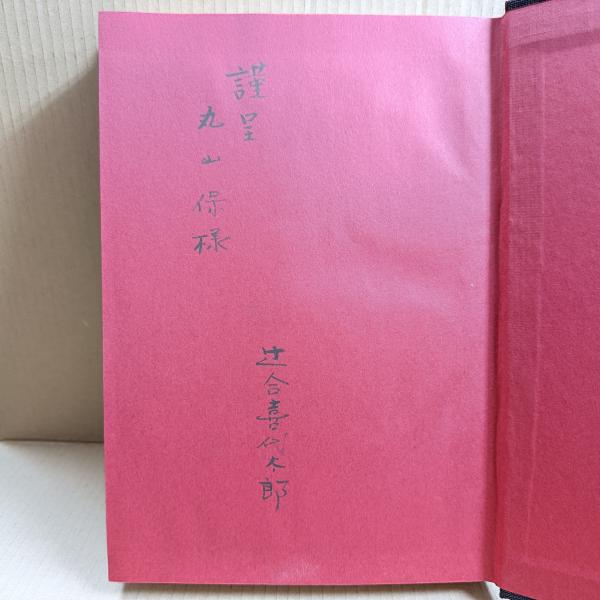 謹呈
丸山保様
辻合喜代太郎